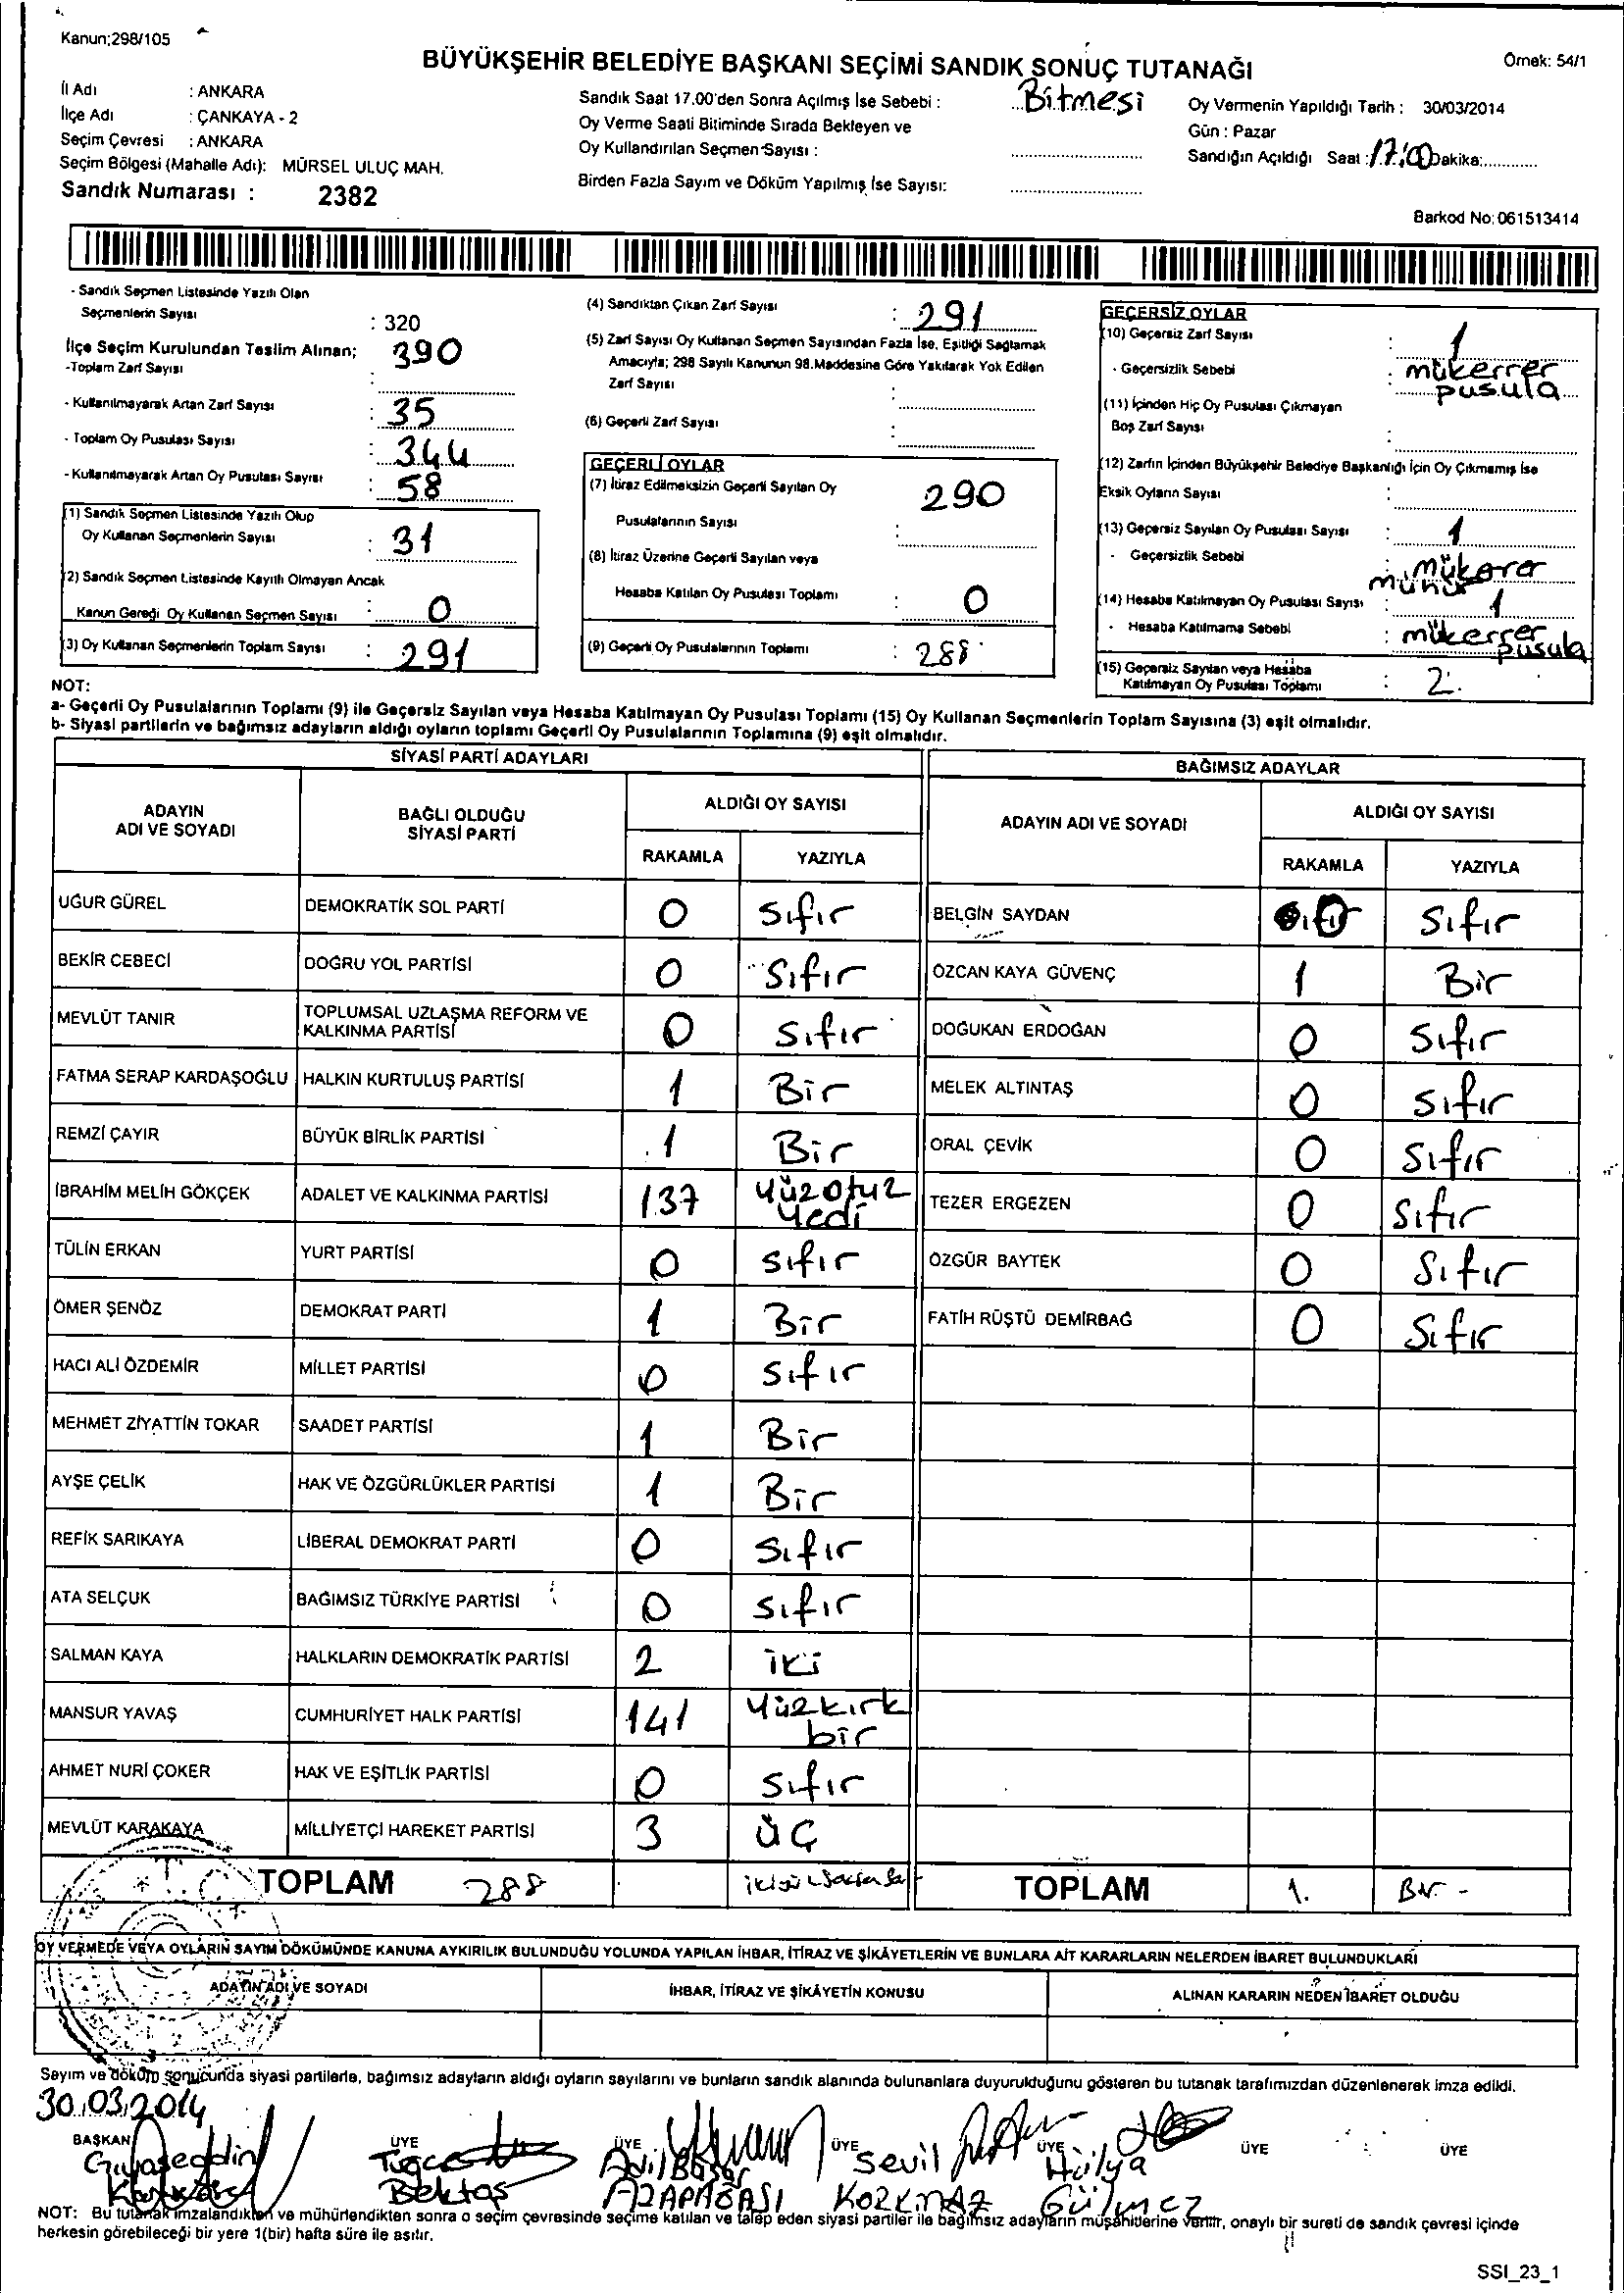 Kanun;298/105
BÜYÜKŞEHİR BELEDİYE BAŞKANI SEÇİMİ SANDIK SONUÇ TUTANAĞI
Örnek: 54/1
İl Adı : ANKARA
İlçe Adı : ÇANKAYA - 2
Seçim Çevresi : ANKARA
Seçim Bölgesi (Mahalle Adı): MÜRSEL ULUÇ MAH.
Sandık Numarası : 2382
Sandık Saat 17.00'den Sonra Açılmış İse Sebebi : Bitmesi
Oy Verme Saati Bitiminde Sırada Bekleyen ve
Oy Kullandırılan Seçmen Sayısı :
Birden Fazla Sayım ve Döküm Yapılmış İse Sayısı:
Oy Vermenin Yapıldığı Tarih : 30/03/2014
Gün : Pazar
Sandığın Açıldığı Saat : 17:00 Dakika:
Barkod No: 061513414
- Sandık Seçmen Listesinde Yazılı Olan
Seçmenlerin Sayısı : 320
İlçe Seçim Kurulundan Teslim Alınan;
-Toplam Zarf Sayısı : 390
- Kullanılmayarak Artan Zarf Sayısı : 35
- Toplam Oy Pusulası Sayısı : 344
- Kullanılmayarak Artan Oy Pusulası Sayısı : 58
(1) Sandık Seçmen Listesinde Yazılı Olup
Oy Kullanan Seçmenlerin Sayısı : 31
(2) Sandık Seçmen Listesinde Kayıtlı Olmayan Ancak
Kanun Gereği Oy Kullanan Seçmen Sayısı : 0
(3) Oy Kullanan Seçmenlerin Toplam Sayısı : 291
(4) Sandıktan Çıkan Zarf Sayısı : 291
(5) Zarf Sayısı Oy Kullanan Seçmen Sayısından Fazla İse, Eşitliği Sağlamak
Amacıyla; 298 Sayılı Kanunun 98.Maddesine Göre Yakılarak Yok Edilen
Zarf Sayısı :
(6) Geçerli Zarf Sayısı :
GEÇERLİ OYLAR
(7) İtiraz Edilmeksizin Geçerli Sayılan Oy
Pusulalarının Sayısı : 290
(8) İtiraz Üzerine Geçerli Sayılan veya
Hesaba Katılan Oy Pusulası Toplamı : 0
(9) Geçerli Oy Pusulalarının Toplamı : 288
GEÇERSİZ OYLAR
(10) Geçersiz Zarf Sayısı : 1
- Geçersizlik Sebebi : mükerrer
pusula
(11) İçinden Hiç Oy Pusulası Çıkmayan
Boş Zarf Sayısı :
(12) Zarfın İçinden Büyükşehir Belediye Başkanlığı İçin Oy Çıkmamış İse
Eksik Oyların Sayısı :
(13) Geçersiz Sayılan Oy Pusulası Sayısı : 1
- Geçersizlik Sebebi : Mükerer
mühür
(14) Hesaba Katılmayan Oy Pusulası Sayısı : 1
- Hesaba Katılmama Sebebi : mükerrer
pusula
(15) Geçersiz Sayılan veya Hesaba
Katılmayan Oy Pusulası Toplamı : 2
NOT:
a- Geçerli Oy Pusulalarının Toplamı (9) ile Geçersiz Sayılan veya Hesaba Katılmayan Oy Pusulası Toplamı (15) Oy Kullanan Seçmenlerin Toplam Sayısına (3) eşit olmalıdır.
b- Siyasi partilerin ve bağımsız adayların aldığı oyların toplamı Geçerli Oy Pusulalarının Toplamına (9) eşit olmalıdır.
SİYASİ PARTİ ADAYLARI
ADAYIN ADI VE SOYADI
BAĞLI OLDUĞU SİYASİ PARTİ
ALDIĞI OY SAYISI
RAKAMLA YAZIYLA
BAĞIMSIZ ADAYLAR
ADAYIN ADI VE SOYADI
ALDIĞI OY SAYISI
RAKAMLA YAZIYLA
UĞUR GÜREL DEMOKRATİK SOL PARTİ 0 Sıfır
BEKİR CEBECİ DOĞRU YOL PARTİSİ 0 Sıfır
MEVLÜT TANIR TOPLUMSAL UZLAŞMA REFORM VE KALKINMA PARTİSİ 0 Sıfır
FATMA SERAP KARDAŞOĞLU HALKIN KURTULUŞ PARTİSİ 1 Bir
REMZİ ÇAYIR BÜYÜK BİRLİK PARTİSİ 1 Bir
İBRAHİM MELİH GÖKÇEK ADALET VE KALKINMA PARTİSİ 137 Yüzotuz Yedi
TÜLİN ERKAN YURT PARTİSİ 0 Sıfır
ÖMER ŞENÖZ DEMOKRAT PARTİ 1 Bir
HACI ALİ ÖZDEMİR MİLLET PARTİSİ 0 Sıfır
MEHMET ZİYATTİN TOKAR SAADET PARTİSİ 1 Bir
AYŞE ÇELİK HAK VE ÖZGÜRLÜKLER PARTİSİ 1 Bir
REFİK SARIKAYA LİBERAL DEMOKRAT PARTİ 0 Sıfır
ATA SELÇUK BAĞIMSIZ TÜRKİYE PARTİSİ 0 Sıfır
SALMAN KAYA HALKLARIN DEMOKRATİK PARTİSİ 2 iki
MANSUR YAVAŞ CUMHURİYET HALK PARTİSİ 141 Yüzkırk bir
AHMET NURİ ÇOKER HAK VE EŞİTLİK PARTİSİ 0 Sıfır
MEVLÜT KARAKAYA MİLLİYETÇİ HAREKET PARTİSİ 3 ÜÇ
TOPLAM 288
BELGİN SAYDAN 0 Sıfır
ÖZCAN KAYA GÜVENÇ 1 Bir
DOĞUKAN ERDOĞAN 0 Sıfır
MELEK ALTINTAŞ 0 Sıfır
ORAL ÇEVİK 0 Sıfır
TEZER ERGEZEN 0 Sıfır
ÖZGÜR BAYTEK 0 Sıfır
FATİH RÜŞTÜ DEMİRBAĞ 0 Sıfır
TOPLAM 1. Bir -
OY VERMEDE VEYA OYLARIN SAYIM DÖKÜMÜNDE KANUNA AYKIRILIK BULUNDUĞU YOLUNDA YAPILAN İHBAR, İTİRAZ VE ŞİKÂYETLERİN VE BUNLARA AİT KARARLARIN NELERDEN İBARET BULUNDUKLARI
ADAYIN ADI VE SOYADI İHBAR, İTİRAZ VE ŞİKÂYETİN KONUSU ALINAN KARARIN NEDEN İBARET OLDUĞU
Sayım ve döküm sonucunda siyasi partilerle, bağımsız adayların aldığı oyların sayılarını ve bunların sandık alanında bulunanlara duyurulduğunu gösteren bu tutanak tarafımızdan düzenlenerek imza edildi.
30.03.2014
BAŞKAN ÜYE ÜYE ÜYE ÜYE ÜYE ÜYE
Gıyaseddin
Bektaş
AZAPAĞASI
Sevil
KORKMAZ
Hülya
Gülmez
NOT: Bu tutanak imzalandıktan ve mühürlendikten sonra o seçim çevresinde seçime katılan ve talep eden siyasi partiler ile bağımsız adayların müşahitlerine verilir, onaylı bir sureti de sandık çevresi içinde
herkesin görebileceği bir yere 1(bir) hafta süre ile asılır.
SSI_23_1